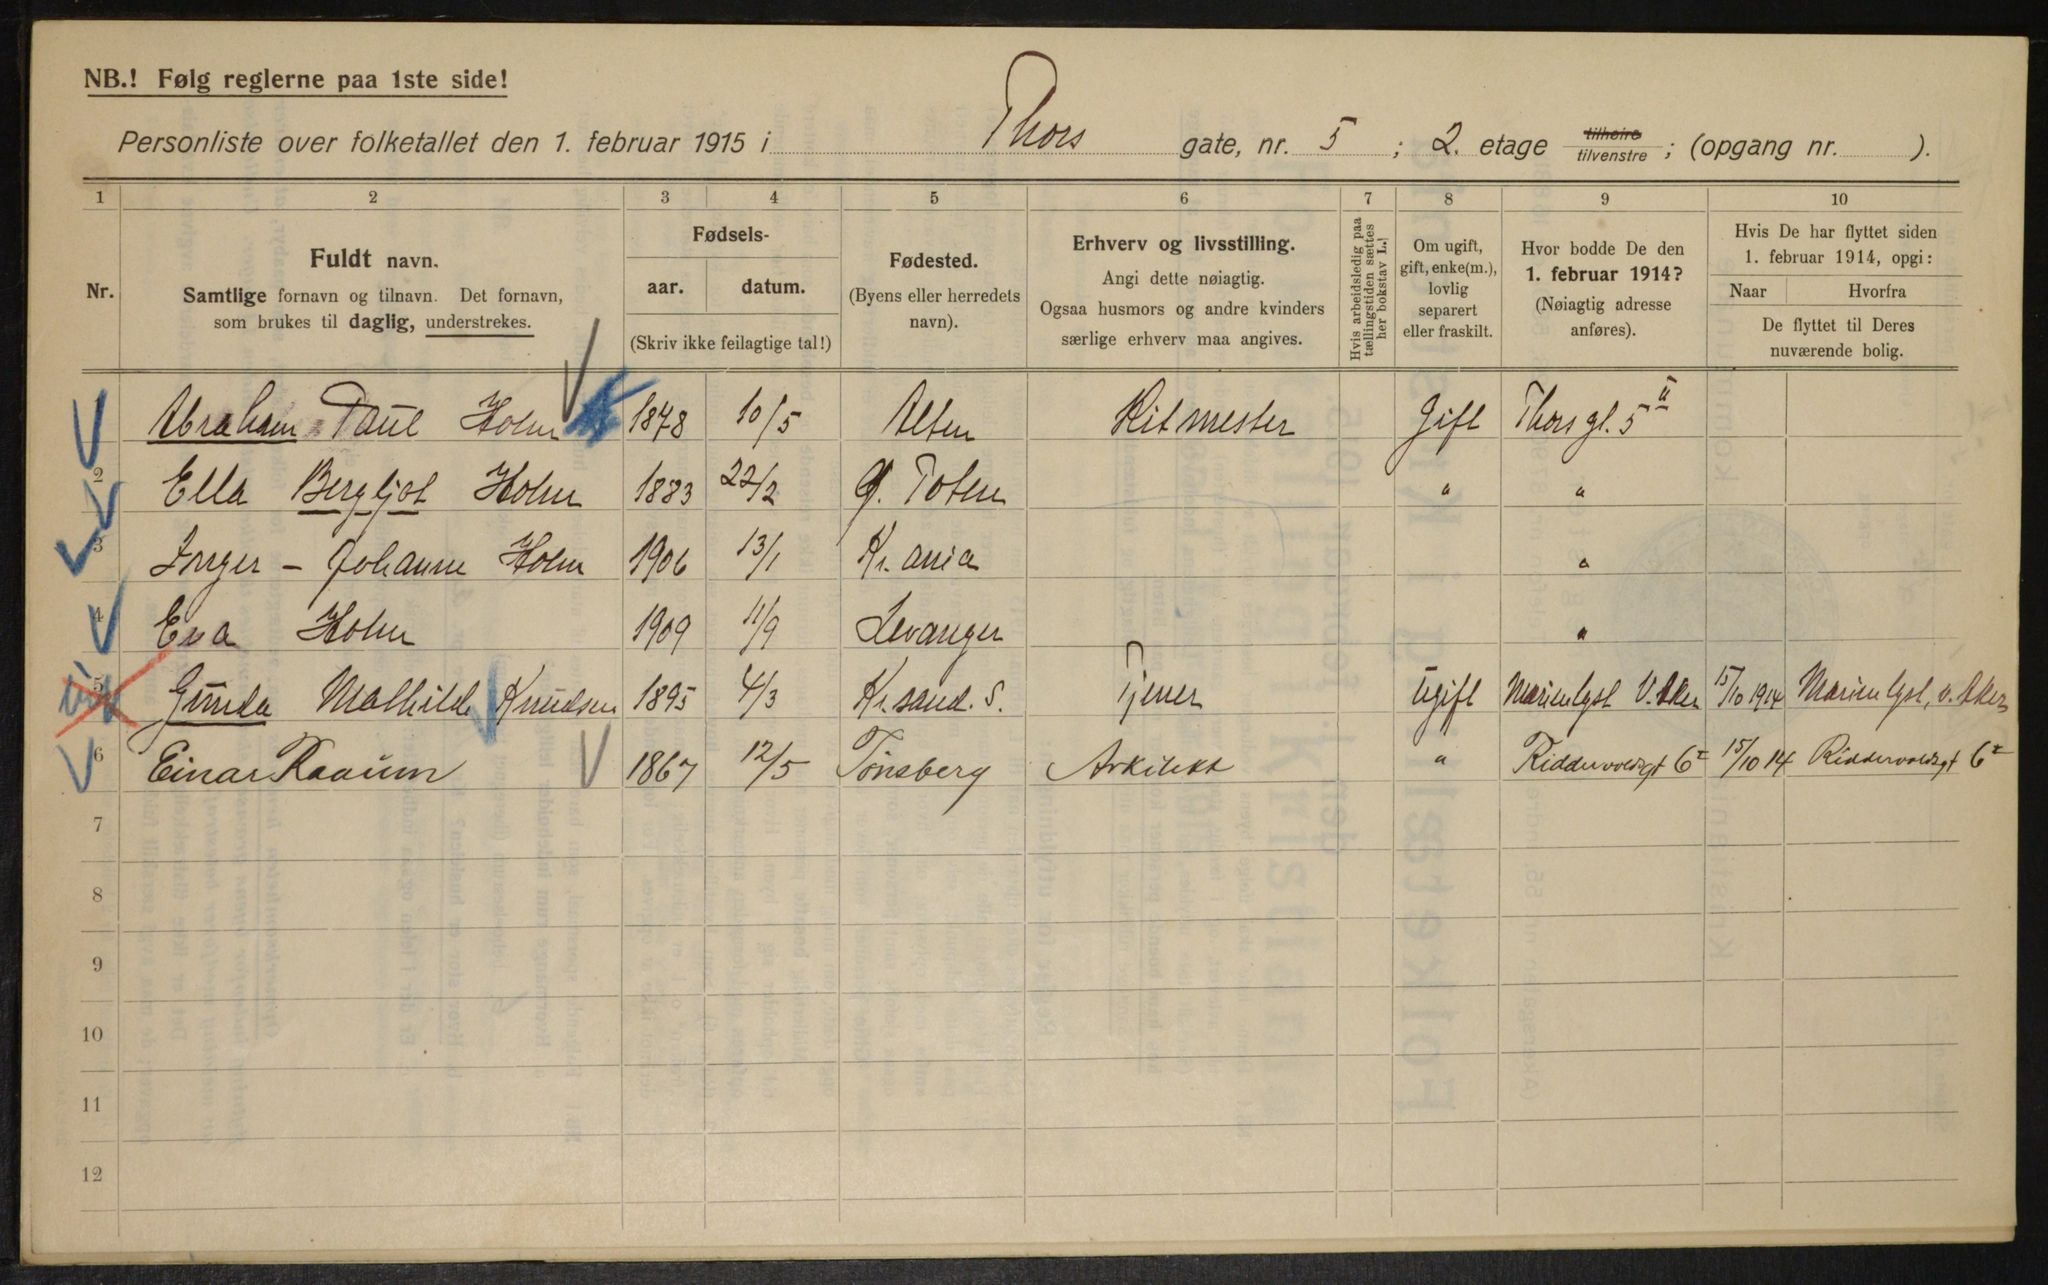 NB.! Følg reglerne paa 1ste side!
Personliste over folketallet den 1. februar 1915 i Thors gate, nr. 5; 2. etage tilhøire tilvenstre; (opgang nr. ).
1 2 3 4 5 6 7 8 9 10
Nr.
Fuldt navn.
Samtlige fornavn og tilnavn. Det fornavn,
som brukes til daglig, understrekes.
Fødsels-
aar. datum.
(Skriv ikke feilagtige tal!)
Fødested.
(Byens eller herredets
navn).
Erhverv og livsstilling.
Angi dette nøiagtig.
Ogsaa husmors og andre kvinders
særlige erhverv maa angives.
Hvis arbeidsledig paa
tællingstiden sættes
her bokstav L.
Om ugift,
gift, enke(m.),
lovlig
separert
eller fraskilt.
Hvor bodde De den
1. februar 1914?
(Nøiagtig adresse
anføres).
Hvis De har flyttet siden
1. februar 1914, opgi:
Naar Hvorfra
De flyttet til Deres
nuværende bolig.
Abraham Paul Holm 1878 10/5 Alten Ritmester Gift Thors gt. 5 II
2 Ella Bergljot Holm 1883 22/2 Ø. Toten " "
3 Inger - Johanne Holm 1906 13/1 Kr.ania "
4 Eva Holm 1909 11/9 Levanger "
5 Gunda Mathilde Knudsen 1895 4/3 Kr.sand. S. Tjener Ugift Marienlyst V. Aker 15/10 1914 Marienlyst, V. Aker
6 Einar Kaaum 1867 12/5 Tønsberg Arkitekt " Riddervoldsgt 6 15/10 14 Riddervoldsgt 6
7
8
9
10
11
12